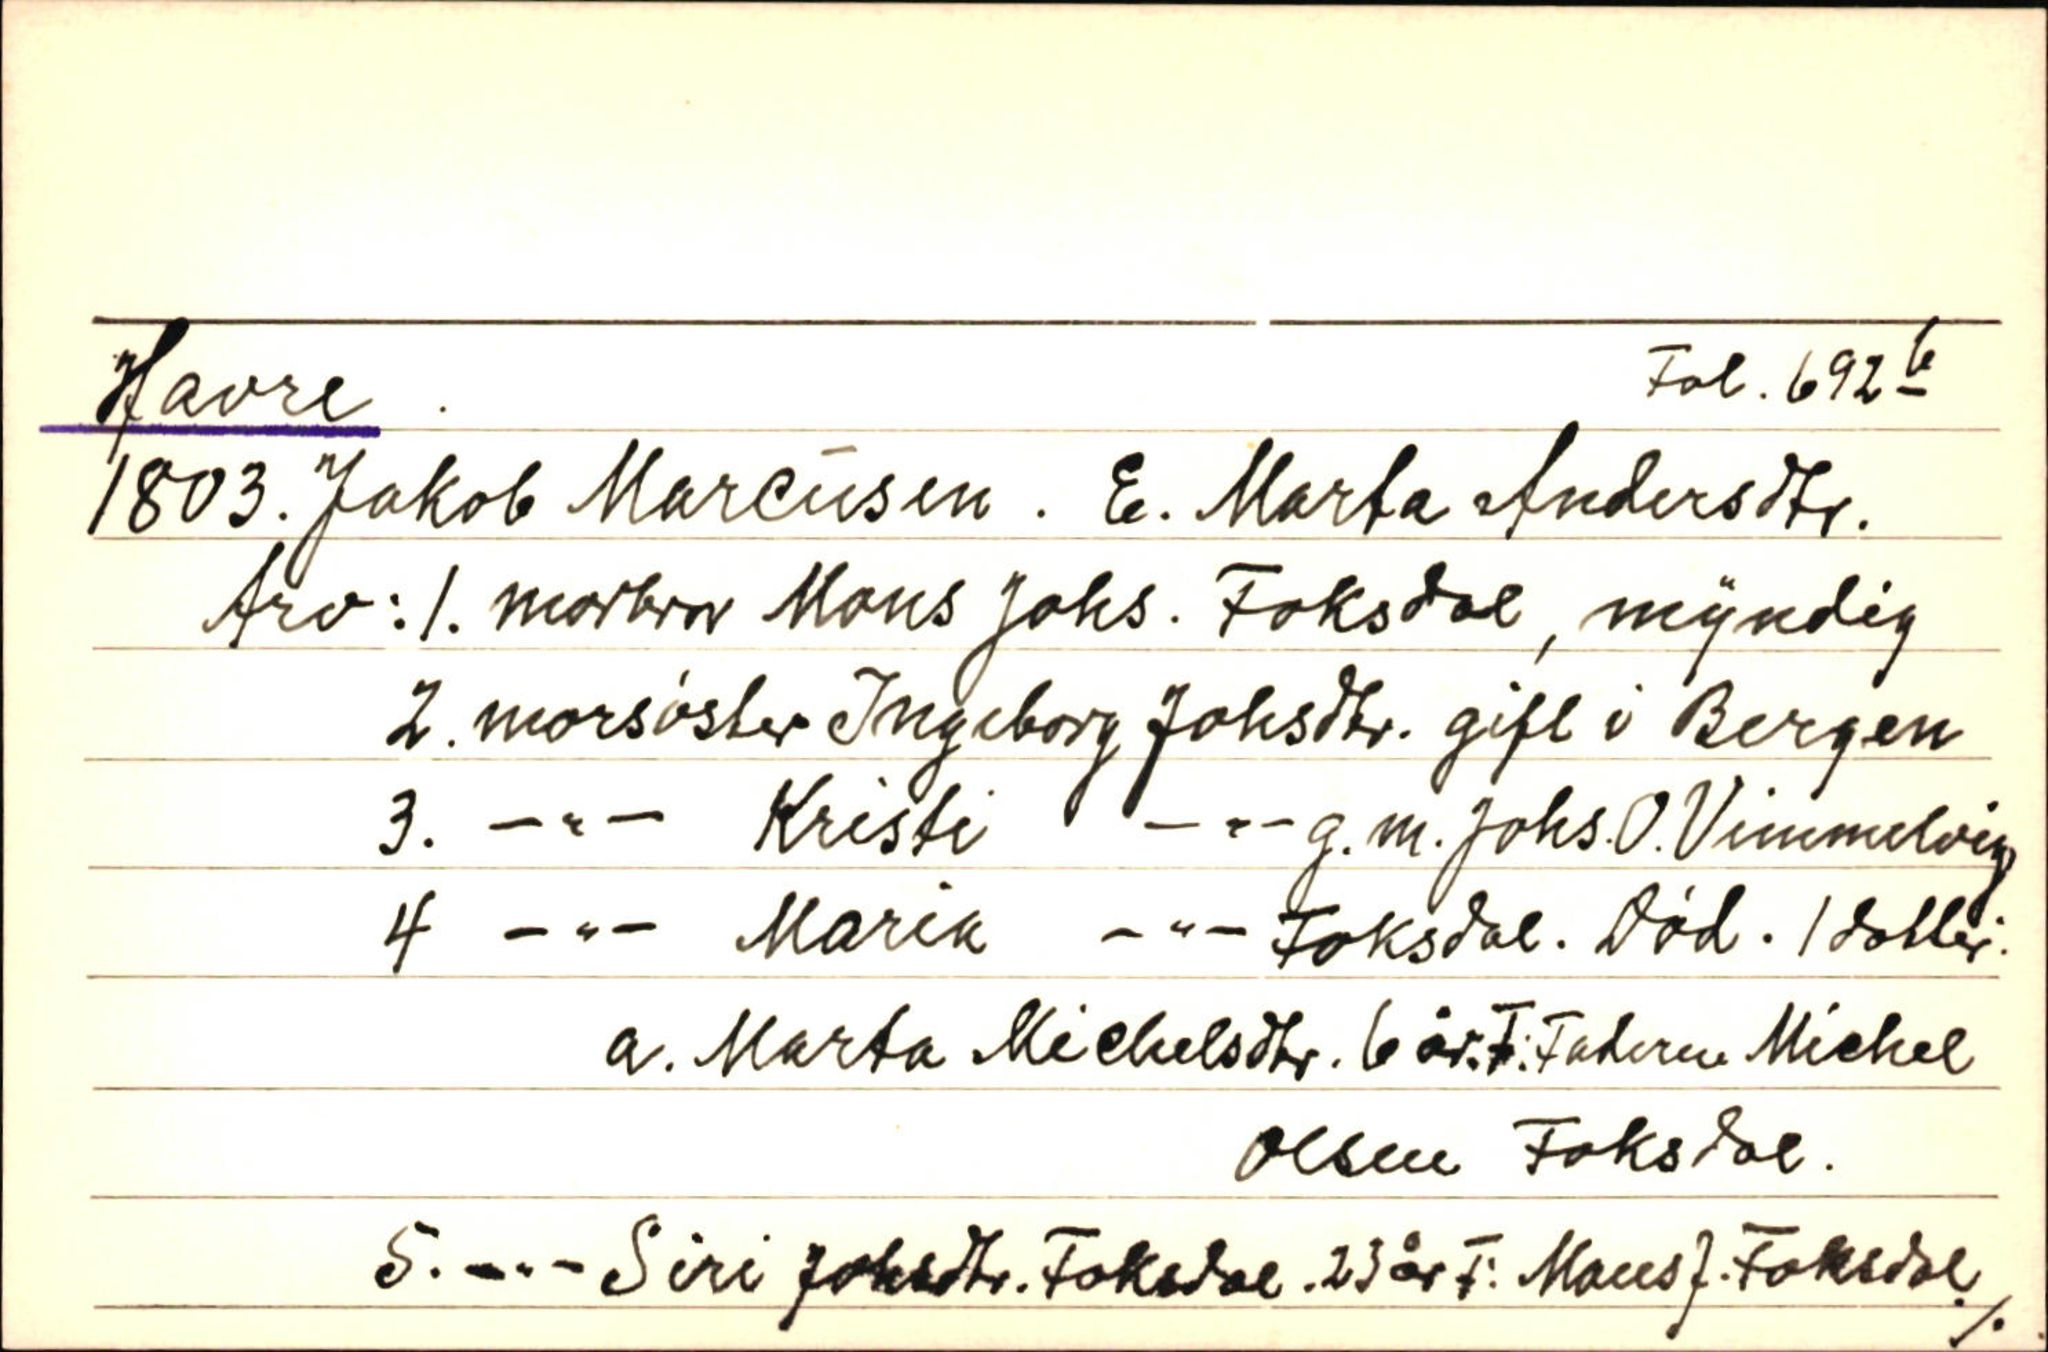 Havre. Fol. 692 b
1803. Jakob Marcusen. E. Marta Andersdtr.
Arv: 1. morbror Mons Johs. Foksdal, myndig
2. morsöster Ingeborg Johsdtr. gift i Bergen
3. —"— Kristi —"— g. m. Johs. O. Vimmelvig
4 —"— Marik —"— Foksdal. Död. 1 dotter.
a. Marta Michelsdtr. 6 år. F: Faderen Michel
Olsen Foksdal.
5. —"— Siri Johsdtr. Foksdal. 23 år F: Mons J. Foksdal
./.